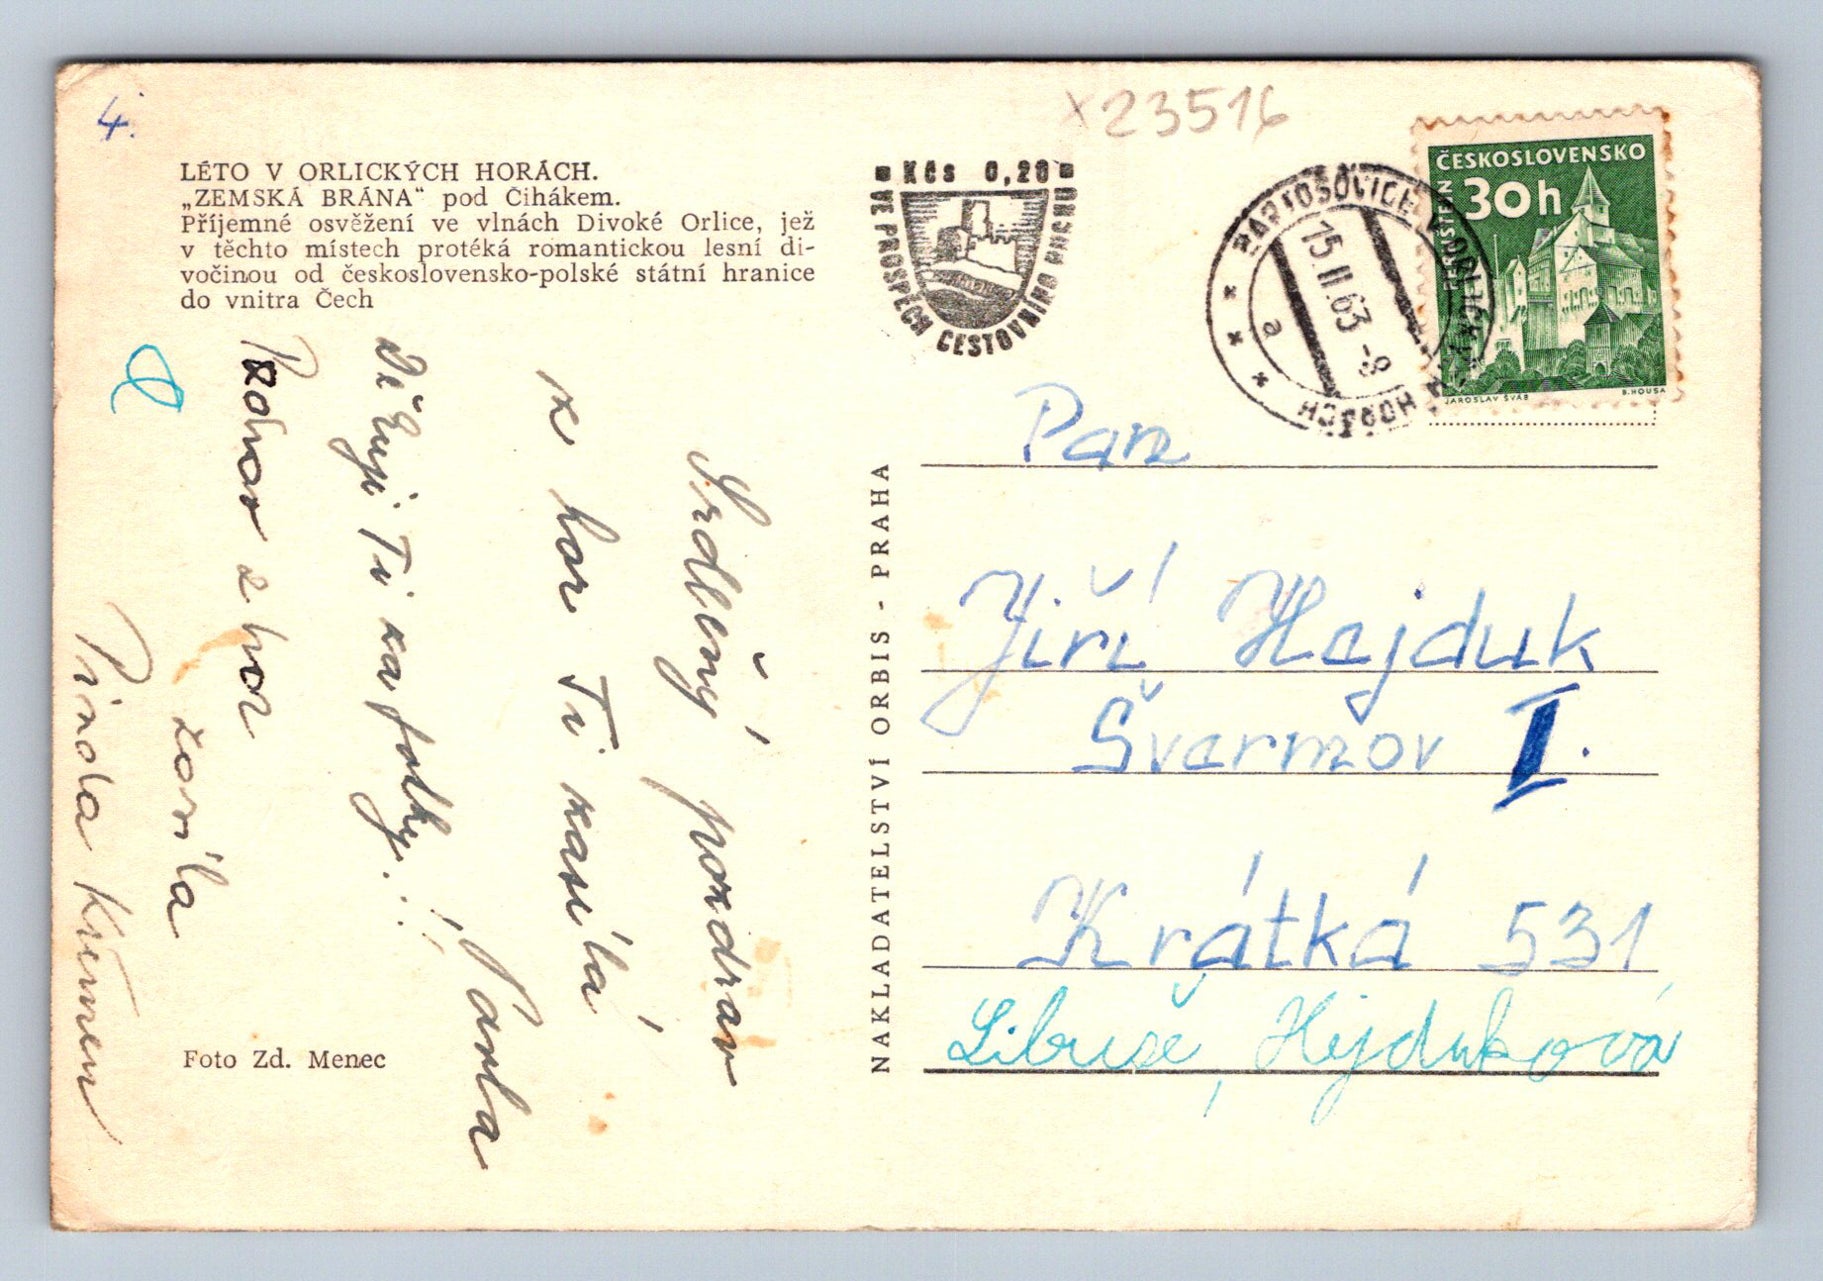 4.
LÉTO V ORLICKÝCH HORÁCH.
„ZEMSKÁ BRÁNA“ pod Čihákem.
Příjemné osvěžení ve vlnách Divoké Orlice, jež
v těchto místech protéká romantickou lesní di-
vočinou od československo-polské státní hranice
do vnitra Čech
Srdečný pozdrav
z hor Ti zasílá
Jarla
Děkuji Ti za fotky
z hor
zasílá
Foto Zd. Menec
NAKLADATELSTVÍ ORBIS - PRAHA
x23516
Kčs 0,20
VE PROSPĚCH CESTOVNÍHO RUCHU
BARTOŠOVICE V ORLICKÝCH HORÁCH
15.II.63-8
a
ČESKOSLOVENSKO
30h
PERNŠTEJN
JAROSLAV ŠVÁB
B. HOUSA
Pan
Jiří Hejduk
Švarmov I.
Krátká 531
Libuše, Hejduková